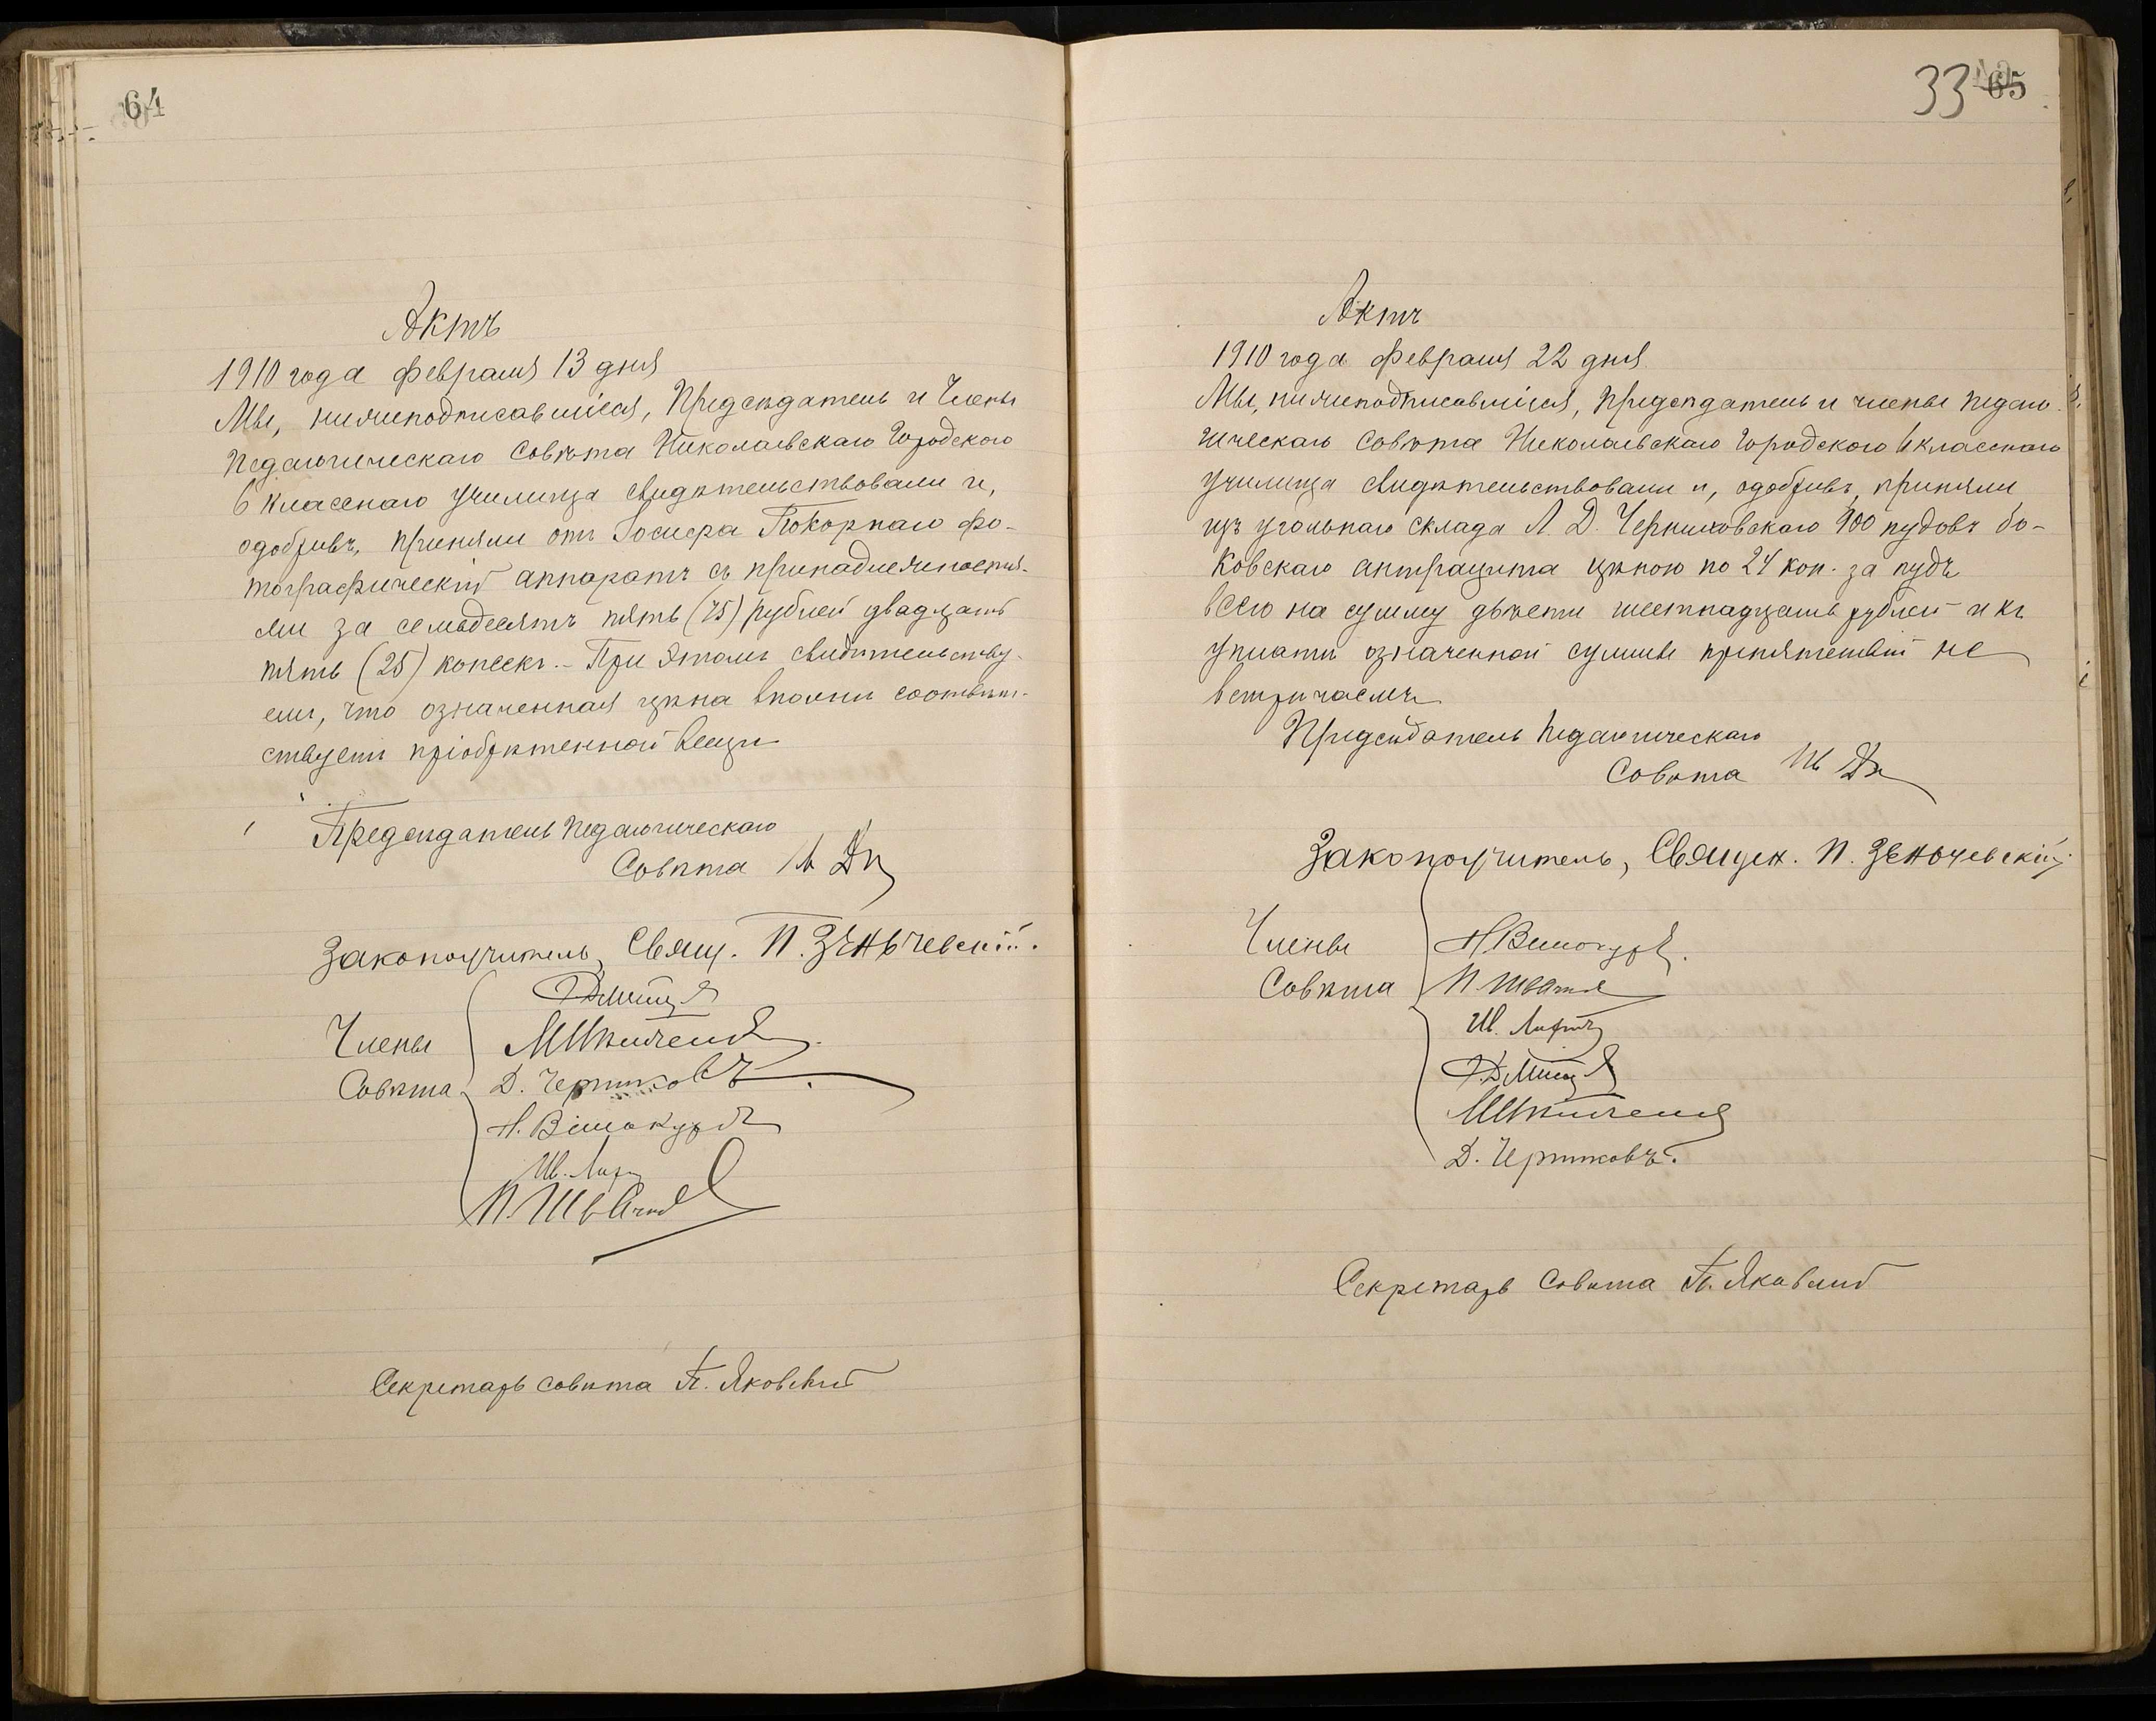 64
Актъ
1910 года февраля 13 дня
Мы, нижеподписавшіеся, Предсѣдатель и Члены
Педагогическаго Совѣта Николаевскаго Городского
6 класснаго училища свидѣтельствовали и,
одобривъ, приняли отъ Іосифа Покорнаго фо-
тографическій аппаратъ съ принадлежностя-
ми за семьдесятъ пять (75) рублей двадцать
пять (25) копеекъ. - При этомъ свидѣтельству-
емъ, что означенная цѣна вполнѣ соотвѣт-
ствуетъ пріобрѣтенной вещи
Предсѣдатель Педагогическаго
Совѣта
Законоучитель, Свящ. П. Зеньчевскій.
Члены
Совѣта
Д. Чертковъ
Н. Винокуровъ
Ив.
П.
Секретарь совѣта П. Яковскій
33 65
Актъ
1910 года февраля 22 дня.
Мы, нижеподписавшіеся, Предсѣдатель и члены Педаго-
гическаго Совѣта Николаевскаго Городского 6 класснаго
училища свидѣтельствовали и, одобривъ, приняли
изъ угольнаго склада Л. Д. Черниховскаго 900 пудовъ бо-
ковскаго антрацита цѣною по 24 коп. за пудъ
всего на сумму двѣсти шестнадцать рублей и къ
уплатѣ означенной суммы препятствій не
встрѣчаемъ
Предсѣдатель Педагогическаго
Совѣта
Законоучитель, Священ. П. Зеньчевскій.
Члены
Совѣта
Н. Винокуровъ.
П.
Ив.
Д. Чертковъ.
Секретарь Совѣта П. Яковскій